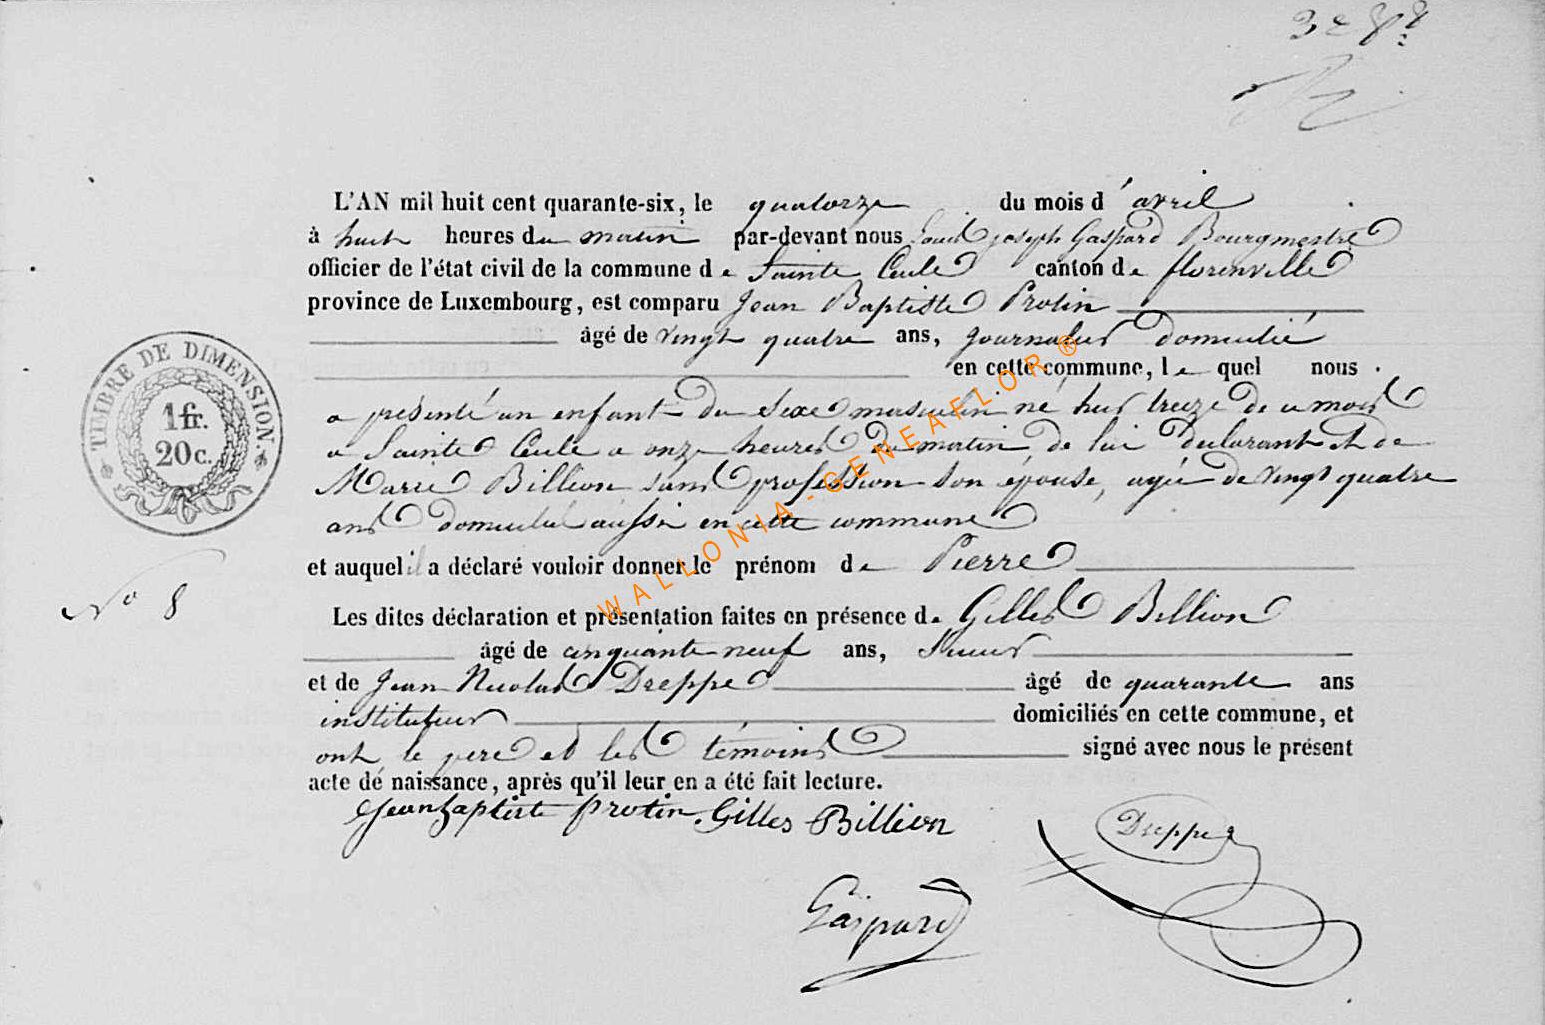 TIMBRE DE DIMENSION
1 fr.
20 c.
L'AN mil huit cent quarante-six, le quatorze du mois d'avril
à huit heures du matin par-devant nous Louis joseph Gaspard Bourgmestre
officier de l'état civil de la commune de Sainte Cecile canton de florenville
province de Luxembourg, est comparu Jean Baptiste Protin
âgé de vingt quatre ans, journalier domicilié
en cette commune, le quel nous
a présenté un enfant du sexe masculin né hier treize de ce mois
a Sainte Cecile a onze heures du matin, de lui declarant et de
Marie Billion, sans profession son épouse, agée de vingt quatre
ans domiciliée aussi en cette commune
et auquel il a déclaré vouloir donner le prénom de Pierre
No 8
Les dites déclaration et présentation faites en présence de Gilles Billion
âgé de cinquante neuf ans,
et de Jean Nicolas Dreppe âgé de quarante ans
instituteur domiciliés en cette commune, et
ont le pere et les témoins signé avec nous le présent
acte de naissance, après qu'il leur en a été fait lecture.
Jean baptiste protin. Gilles Billion Dreppe
Gaspard
WALLONIA-GENEAFLOR ®